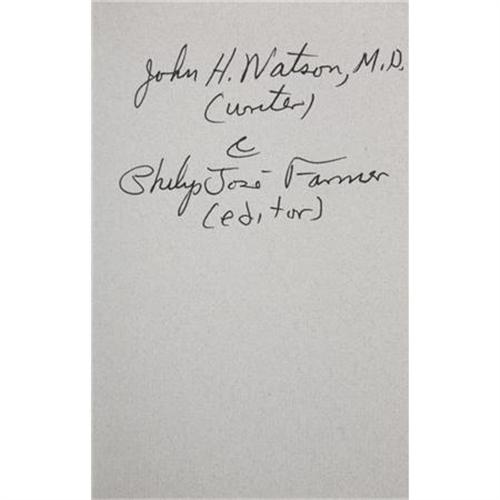 John H. Watson, M.D.
(writer)
&
Philip José Farmer
(editor)